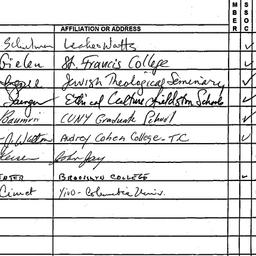 AFFILIATION OR ADDRESS
MBER
SSOC
Schulman Leake & Watts
Gielen St. Francis College
Jewish Theological Seminary
Ethical Culture Fieldston Schools
CUNY Graduate School
J. Watson Audrey Cohen College - TC
John Jay
BROOKLYN COLLEGE
Cimet YIVO - Columbia Univ.